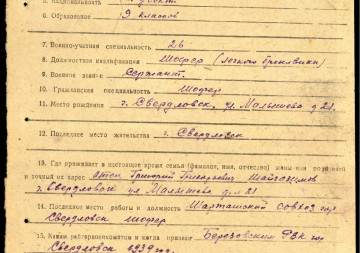 5. Национальность
6. Образование 9 классов
7. Военно-учетная специальность 26
8. Должностная квалификация Шофер (легкого броневика)
9. Военное звание Сержант.
10. Гражданская специальность Шофер
11. Место рождения г. Свердловск, ул. Малышева д 21.
12. Последнее место жительства г. Свердловск
13. Где проживает в настоящее время семья (фамилия, имя, отчество) жены или родителей
и точный их адрес Отец Григорий Григорьевич
г. Свердловск ул Малышева д. 21
14. Последнее место работы и должность Шарташский совхоз гор
Свердловск шофер
15. Каким райгорвоенкоматом и когда призван Березовским РВК гор
Свердловск 1939 год.